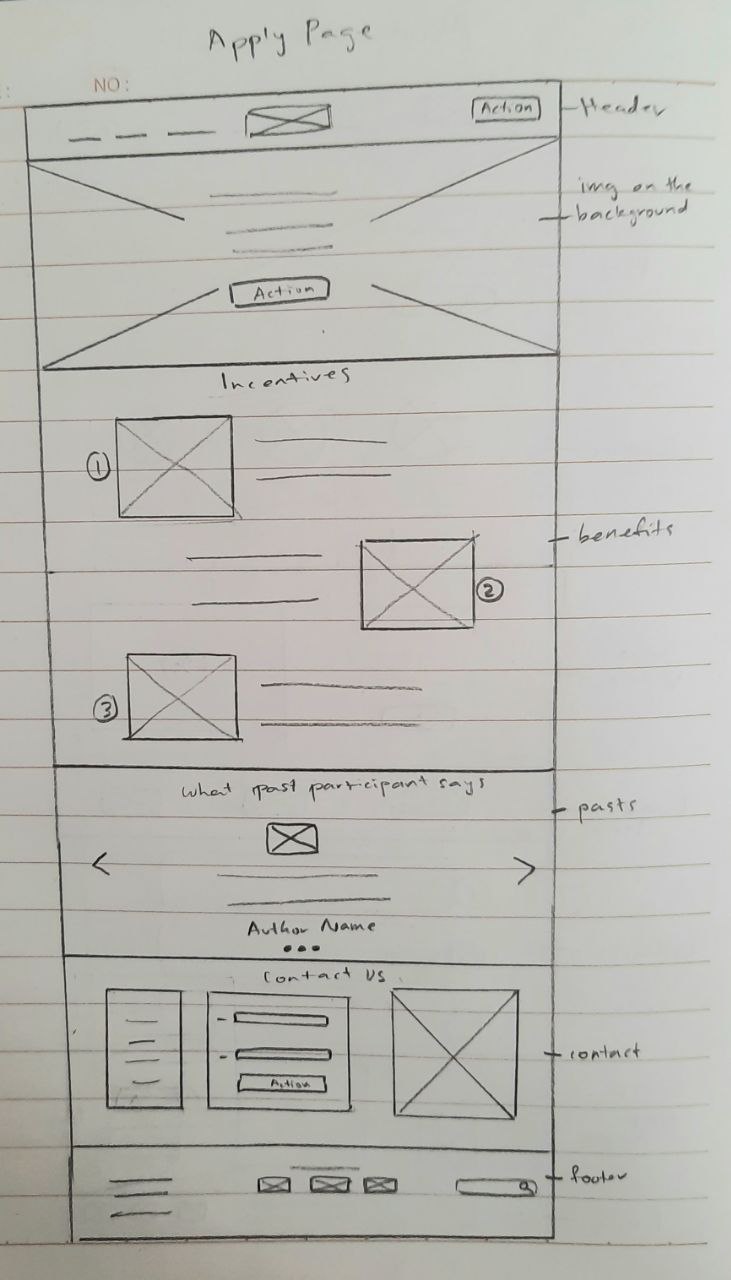 Apply Page
NO:
Action
Header
img on the
background
Action
Incentives
1
benefits
2
3
What past participant says
pasts
Author Name
Contact us
Action
contact
footer